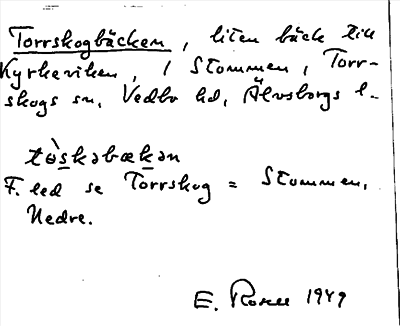 Torrskogbäcken, liten bäck till
Kyrkeviken, i Stommen, Torr-
skogs sn, Vedbo hd, Älvsborgs l.
tòskəbækən
F. led se Torrskog = Stommen,
Nedre.
E. 1949